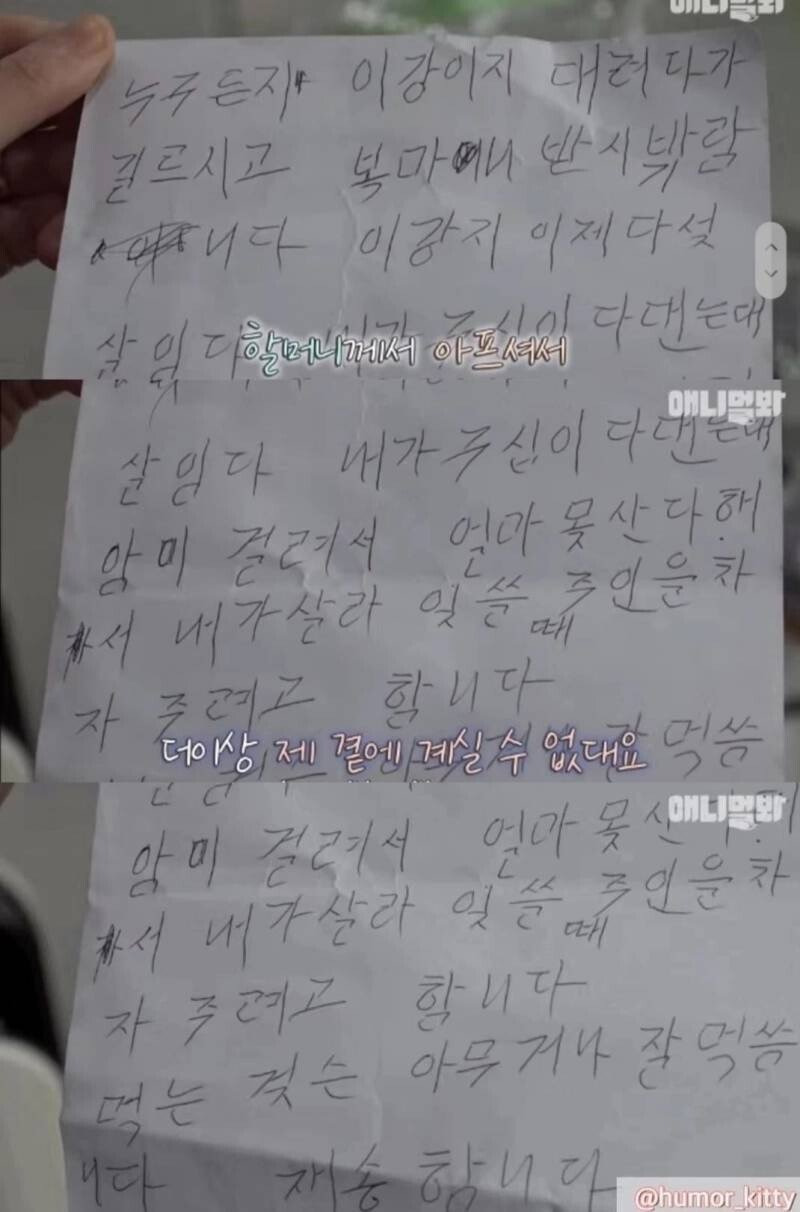 애니멀봐
누구든지 이강이지 대려다가
길르시고 복마니 반시밖람
니다 이강지 이제다섯
살임다
할머니께서 아프셔서
주십이 다댄는대
애니멀봐
살임다 내가 주십이 다댄는대
암미 걸려서 얼마 못산다.해
서 내가살라 잊쓸 때 주인을차
자 주려고 합니다
더이상 제 곁에 계실 수 없대요
잘먹씀
애니멀봐
암미 걸려서 얼마 못산
서 내가살라 잊쓸 때 주인을차
자 주려고 합니다
먹는 것슨 아무거나 잘먹씀
니다 재송합니다
@humor_kitty